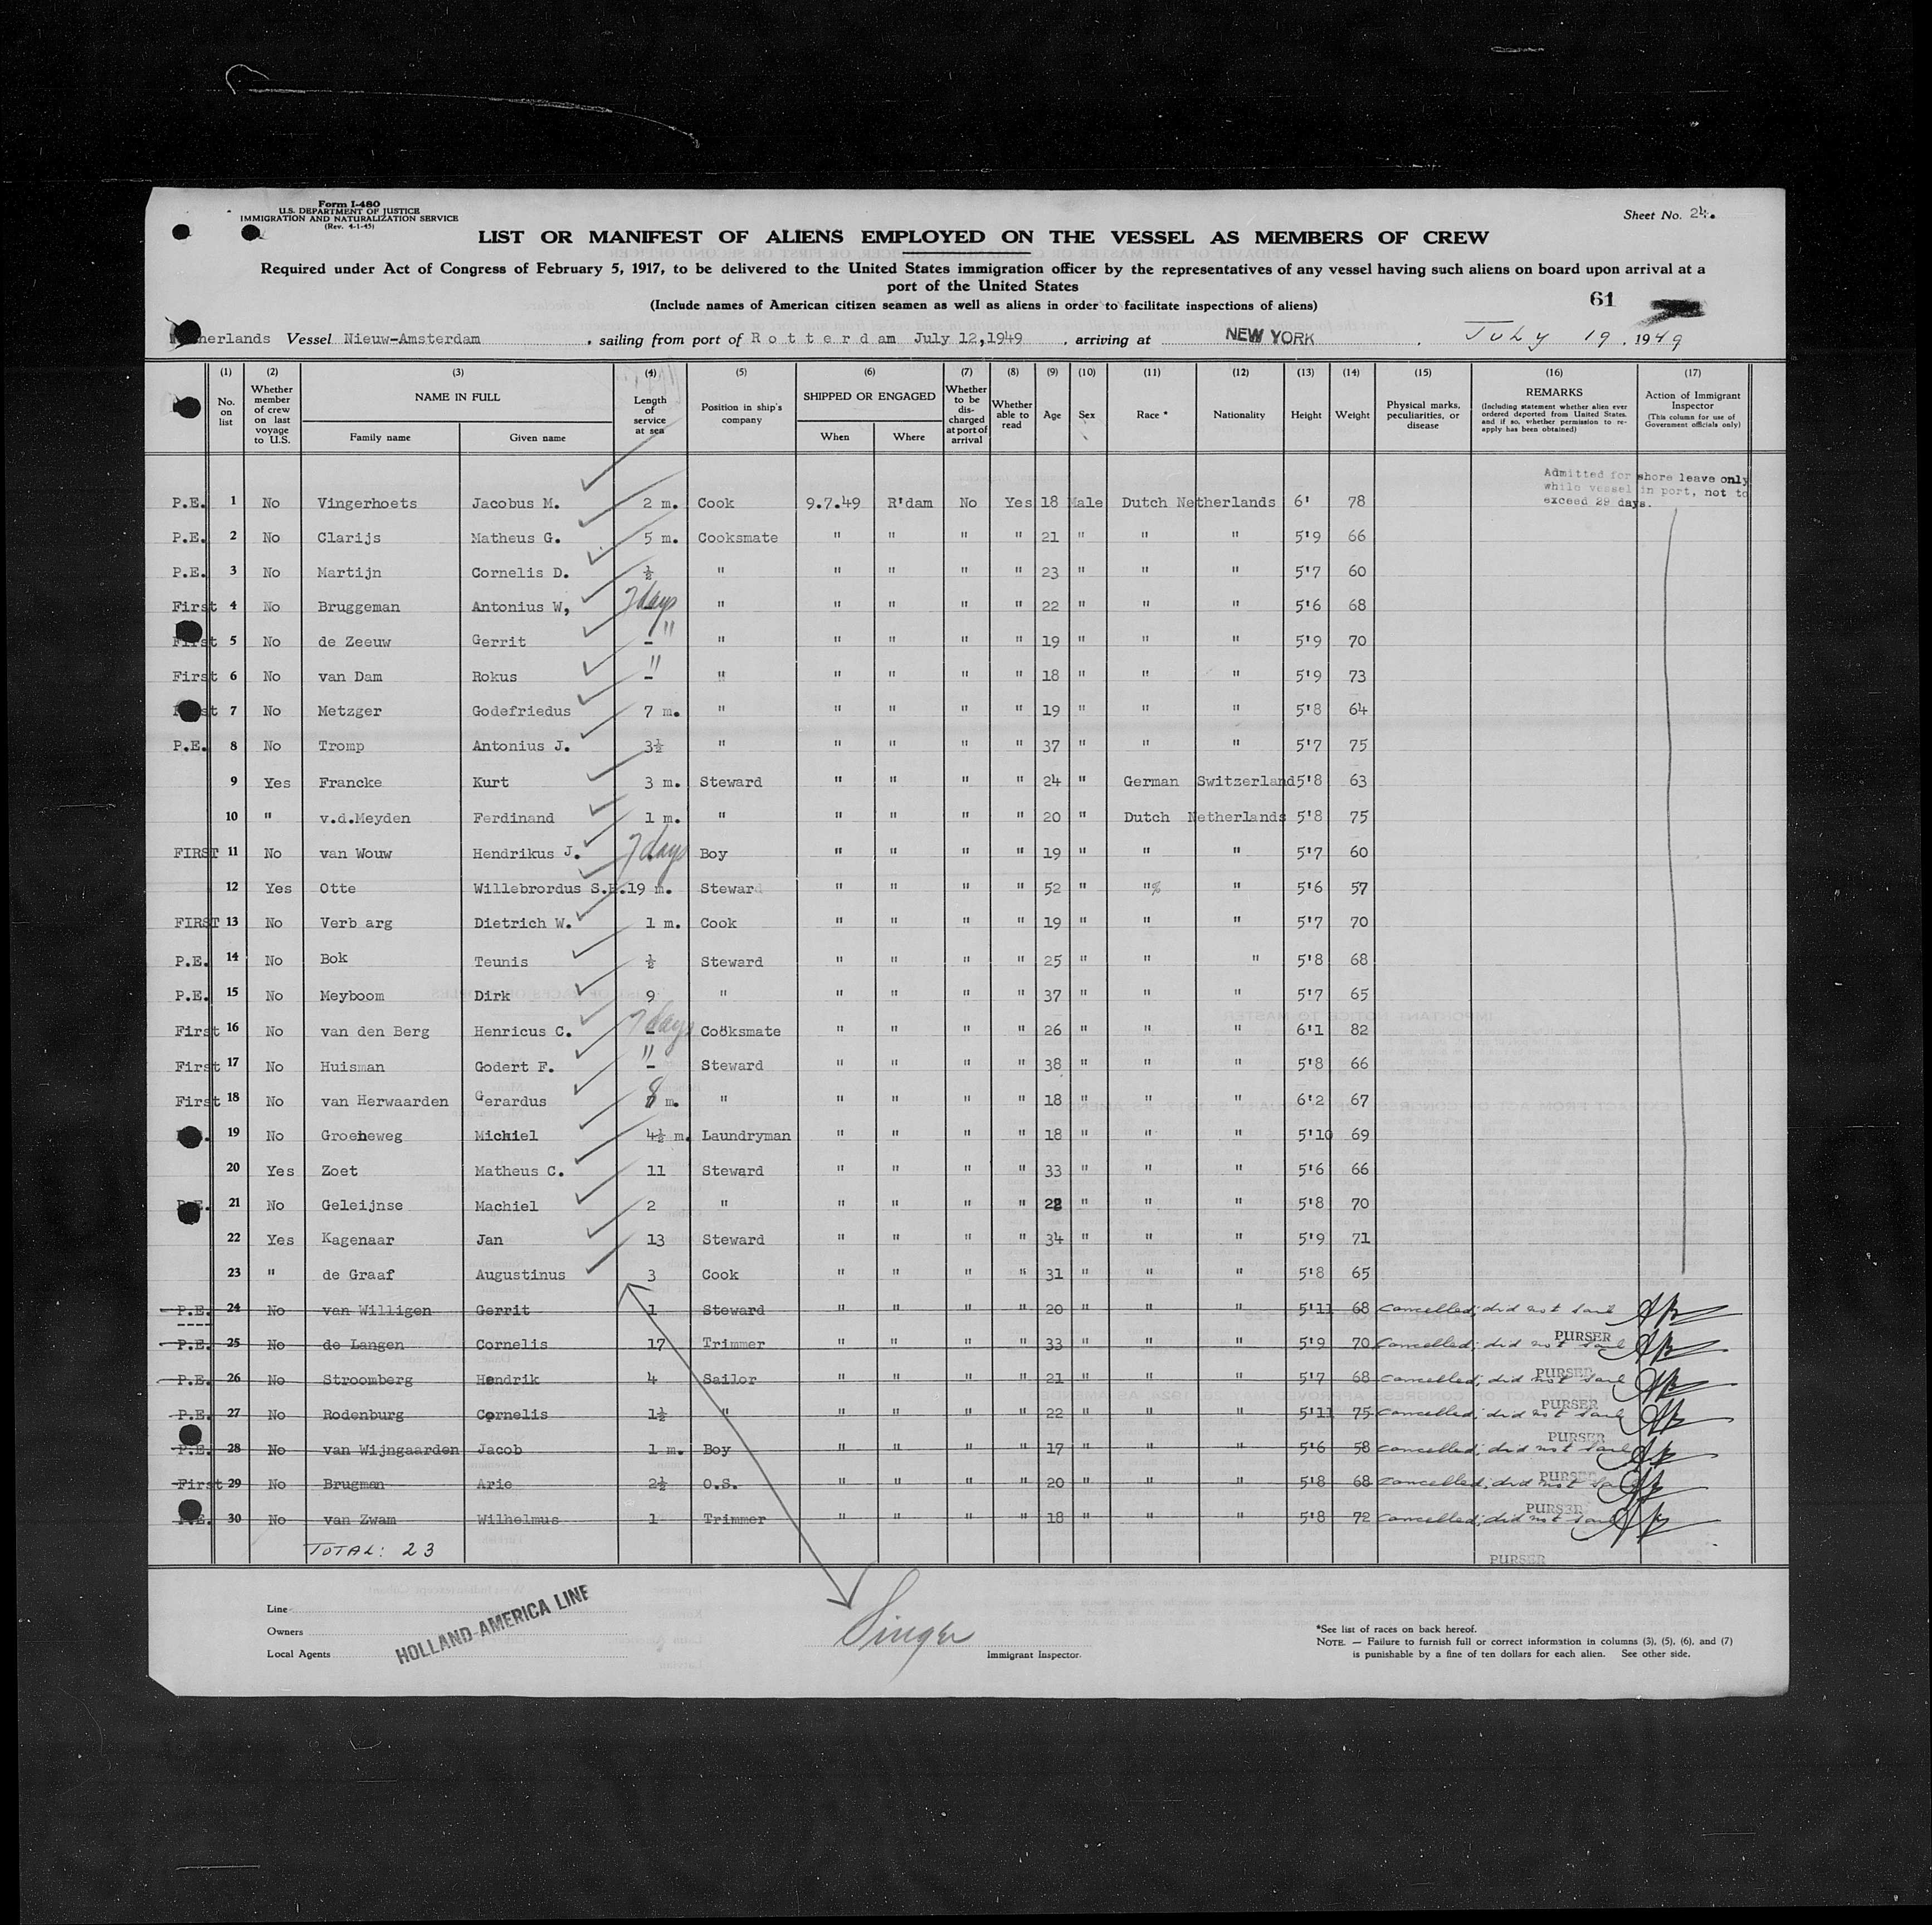 Form I-480
U.S. DEPARTMENT OF JUSTICE
IMMIGRATION AND NATURALIZATION SERVICE
(Rev. 4-1-45)
Sheet No. 24.
LIST OR MANIFEST OF ALIENS EMPLOYED ON THE VESSEL AS MEMBERS OF CREW
Required under Act of Congress of February 5, 1917, to be delivered to the United States immigration officer by the representatives of any vessel having such aliens on board upon arrival at a
port of the United States
(Include names of American citizen seamen as well as aliens in order to facilitate inspections of aliens)
61
Vessel Nieuw-Amsterdam , sailing from port of Rotterdam July 12,1949 , arriving at NEW YORK , July 19, 1949
(1) (2) (3) (4) (5) (6) (7) (8) (9) (10) (11) (12) (13) (14) (15) (16) (17)
No. on list
Whether member of crew on last voyage to U.S.
NAME IN FULL
Family name Given name
Length of service at sea
Position in ship's company
SHIPPED OR ENGAGED
When Where
Whether to be discharged at port of arrival
Whether able to read
Age Sex Race * Nationality Height Weight
Physical marks, peculiarities, or disease
REMARKS
(Including statement whether alien ever ordered deported from United States, and if so, whether permission to reapply has been obtained)
Action of Immigrant Inspector
(This column for use of Government officials only)
Admitted for shore leave only
while vessel in port, not to
exceed 29 days.
P.E. 1 No Vingerhoets Jacobus M. 2 m. Cook 9.7.49 R'dam No Yes 18 Male Dutch Netherlands 6' 78
P.E. 2 No Clarijs Matheus G. 5 m. Cooksmate " " " " 21 " " " 5'9 66
P.E. 3 No Martijn Cornelis D. ½ " " " " " 23 " " " 5'7 60
First 4 No Bruggeman Antonius W, 7 days " " " " " 22 " " " 5'6 68
First 5 No de Zeeuw Gerrit - " " " " " " 19 " " " 5'9 70
First 6 No van Dam Rokus - " " " " " " 18 " " " 5'9 73
7 No Metzger Godefriedus 7 m. " " " " " 19 " " " 5'8 64
P.E. 8 No Tromp Antonius J. 3½ " " " " " 37 " " " 5'7 75
9 Yes Francke Kurt 3 m. Steward " " " " 24 " German Switzerland 5'8 63
10 " v.d.Meyden Ferdinand 1 m. " " " " " 20 " Dutch Netherlands 5'8 75
FIRST 11 No van Wouw Hendrikus J. 7 days Boy " " " " 19 " " " 5'7 60
12 Yes Otte Willebrordus 19 m. Steward " " " " 52 " " " 5'6 57
FIRST 13 No Verb arg Dietrich W. 1 m. Cook " " " " 19 " " " 5'7 70
P.E. 14 No Bok Teunis ½ Steward " " " " 25 " " " 5'8 68
P.E. 15 No Meyboom Dirk 9 " " " " " 37 " " " 5'7 65
First 16 No van den Berg Henricus C. 7 days Cooksmate " " " " 26 " " " 6'1 82
First 17 No Huisman Godert F. - " Steward " " " " 38 " " " 5'8 66
First 18 No van Herwaarden Gerardus 8 m. " " " " " 18 " " " 6'2 67
19 No Groeneweg Michiel 4½ m. Laundryman " " " " 18 " " " 5'10 69
20 Yes Zoet Matheus C. 11 Steward " " " " 33 " " " 5'6 66
P.E. 21 No Geleijnse Machiel 2 " " " " " " " " 5'8 70
22 Yes Kagenaar Jan 13 Steward " " " " 34 " " " 5'9 71
23 " de Graaf Augustinus 3 Cook " " " " 31 " " " 5'8 65
P.E. 24 No van Willigen Gerrit 1 Steward " " " " 20 " " " 5'11 68 Cancelled; did not sail
P.E. 25 No de Langen Cornelis 17 Trimmer " " " " 33 " " " 5'9 70 Cancelled; did not sail PURSER
P.E. 26 No Stroomberg Hendrik 4 Sailor " " " " 21 " " " 5'7 68 Cancelled; did not sail PURSER
P.E. 27 No Rodenburg Cornelis 1½ " " " " " 22 " " " 5'11 75 Cancelled; did not sail PURSER
P.E. 28 No van Wijngaarden Jacob 1 m. Boy " " " " 17 " " " 5'6 58 Cancelled; did not sail PURSER
First 29 No Brugman Arie 2½ O.S. " " " " 20 " " " 5'8 68 Cancelled; did not sail PURSER
P.E. 30 No van Zwam Wilhelmus 1 Trimmer " " " " 18 " " " 5'8 72 Cancelled; did not sail PURSER
TOTAL: 23
PURSER
Line
Owners
Local Agents
HOLLAND-AMERICA LINE
Singer
Immigrant Inspector.
*See list of races on back hereof.
NOTE. — Failure to furnish full or correct information in columns (3), (5), (6), and (7)
is punishable by a fine of ten dollars for each alien. See other side.